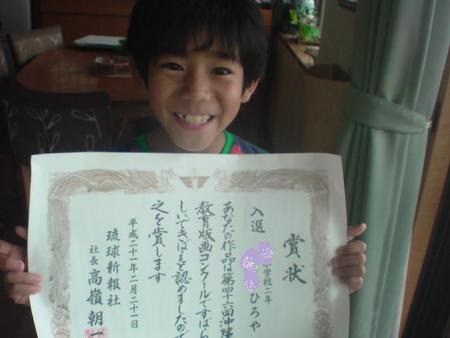 賞状
入選
小学校二年
ひろや
あなたの作品は第四十六回沖縄
教育版画コンクールですばら
しいできばえと認めましたので
之を賞します
平成二十一年二月二十一日
琉球新報社
社長 高嶺朝一